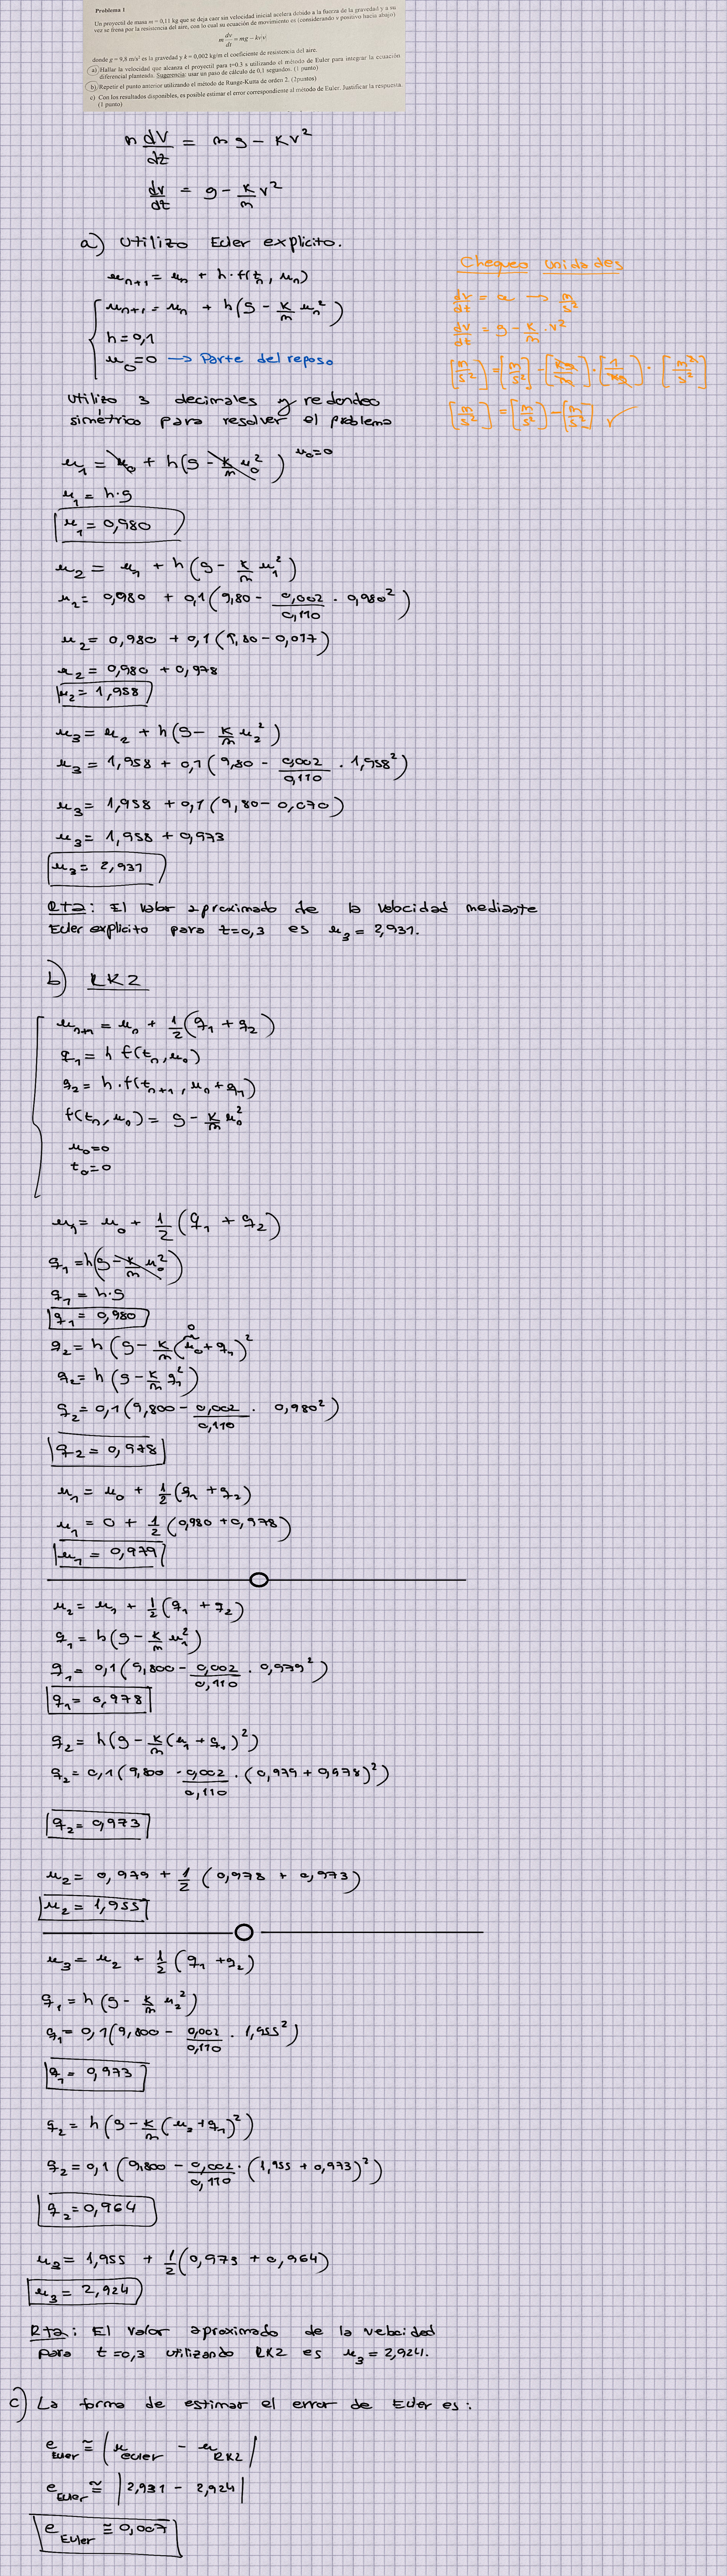 Problema 1
Un proyectil de masa m = 0,11 kg que se deja caer sin velocidad inicial acelera debido a la fuerza de la gravedad y a su
vez se frena por la resistencia del aire, con lo cual su ecuación de movimiento es (considerando v positivo hacia abajo)
m dv/dt = mg − kv|v|
donde g = 9,8 m/s² es la gravedad y k = 0,002 kg/m el coeficiente de resistencia del aire.
a) Hallar la velocidad que alcanza el proyectil para t=0.3 s utilizando el método de Euler para integrar la ecuación
diferencial planteada. Sugerencia: usar un paso de cálculo de 0,1 segundos. (1 punto)
b) Repetir el punto anterior utilizando el método de Runge-Kutta de orden 2. (2puntos)
c) Con los resultados disponibles, es posible estimar el error correspondiente al método de Euler. Justificar la respuesta.
(1 punto)
m dv/dt = mg − kv²
dv/dt = g − k/m v²
a) Utilizo Euler explícito.
u_n+1 = u_n + h·f(t_n, u_n)
u_n+1 = u_n + h(g − k/m u_n²)
h = 0,1
u_0 = 0 → Parte del reposo
Chequeo unidades
dv/dt = a → m/s²
dv/dt = g − k/m · v²
[m/s²] = [m/s²] − [kg/m] · [1/kg] · [m²/s²]
[m/s²] = [m/s²] − [m/s²] ✓
Utilizo 3 decimales y redondeo
simétrico para resolver el problema
u_1 = u_0 + h(g − k/m u_0²) u_0=0
u_1 = h·g
u_1 = 0,980
u_2 = u_1 + h(g − k/m u_1²)
u_2 = 0,980 + 0,1(9,80 − 0,002/0,110 · 0,980²)
u_2 = 0,980 + 0,1(9,80 − 0,017)
u_2 = 0,980 + 0,978
u_2 = 1,958
u_3 = u_2 + h(g − k/m u_2²)
u_3 = 1,958 + 0,1(9,80 − 0,002/0,110 · 1,958²)
u_3 = 1,958 + 0,1(9,80 − 0,070)
u_3 = 1,958 + 0,973
u_3 = 2,931
Rta: El valor aproximado de la velocidad mediante
Euler explicito para t=0,3 es u_3 = 2,931.
b) RK2
u_n+1 = u_n + 1/2(q_1 + q_2)
q_1 = h f(t_n, u_n)
q_2 = h·f(t_n+1, u_n + q_1)
f(t_n, u_n) = g − k/m u_n²
u_0=0
t_0=0
u_1 = u_0 + 1/2(q_1 + q_2)
q_1 = h(g − k/m u_0²)
q_1 = h·g
q_1 = 0,980
0
q_2 = h(g − k/m(u_0 + q_1)²
q_2 = h(g − k/m q_1²)
q_2 = 0,1(9,800 − 0,002/0,110 · 0,980²)
q_2 = 0,978
u_1 = u_0 + 1/2(q_1 + q_2)
u_1 = 0 + 1/2(0,980 + 0,978)
u_1 = 0,979
u_2 = u_1 + 1/2(q_1 + q_2)
q_1 = h(g − k/m u_1²)
q_1 = 0,1(9,800 − 0,002/0,110 · 0,979²)
q_1 = 0,978
q_2 = h(g − k/m(u_1 + q_1)²)
q_2 = 0,1(9,800 − 0,002/0,110 · (0,979 + 0,978)²)
q_2 = 0,973
u_2 = 0,979 + 1/2(0,978 + 0,973)
u_2 = 1,955
u_3 = u_2 + 1/2(q_1 + q_2)
q_1 = h(g − k/m u_2²)
q_1 = 0,1(9,800 − 0,002/0,110 · 1,955²)
q_1 = 0,973
q_2 = h(g − k/m(u_2 + q_1)²)
q_2 = 0,1(9,800 − 0,002/0,110 · (1,955 + 0,973)²)
q_2 = 0,964
u_3 = 1,955 + 1/2(0,973 + 0,964)
u_3 = 2,924
Rta: El valor aproximado de la velocidad
para t=0,3 utilizando RK2 es u_3 = 2,924.
c) La forma de estimar el error de Euler es:
e_Euler ≅ |u_euler − u_RK2|
e_Euler ≅ |2,931 − 2,924|
e_Euler ≅ 0,007